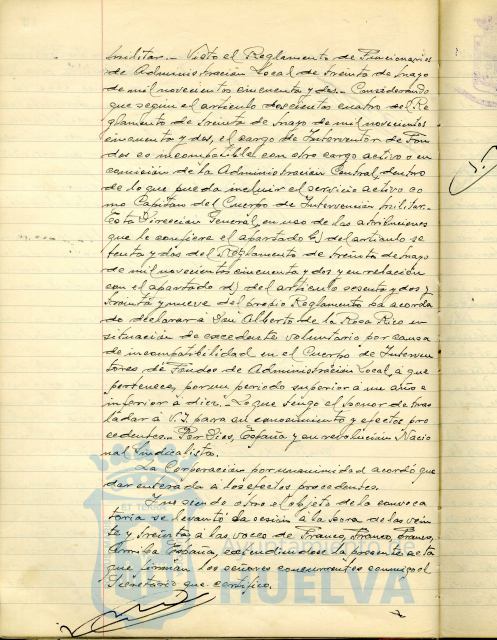 militar.- Visto el Reglamento de Funcionarios
de Administración Local de treinta de mayo
de mil novecientos cincuenta y dos.- Considerando
que según el artículo doscientos cuatro del Re
glamento de treinta de mayo de mil novecientos
cincuenta y dos, el cargo de Interventor de Fon
dos es incompatible con otro cargo activo o en
comisión de la Administración Central, dentro
de lo que pueda incluir el servicio activo co
mo Capitán del Cuerpo de Intervención militar.-
Esta Dirección General, en uso de las atribuciones
que le confiere el apartado b) del artículo se
tenta y dos del Reglamento de treinta de mayo
de mil novecientos cincuenta y dos y en relación
con el apartado d) del artículo sesenta y dos y
treinta y nueve del propio Reglamento ha acorda
do declarar a Don Alberto de la Rosa Rico en
situación de excedente voluntario por causa
de incompatibilidad en el Cuerpo de Interven
tores de Fondos de Administración Local, a que
pertenece, por un periodo superior a un año e
inferior a diez.- Lo que tengo el honor de tras
ladar a V.I. para su conocimiento y efectos pro
cedentes.- Por Dios, España y su revolución Nacio
nal Sindicalista.
La Corporación por unanimidad acordó que
dar enterada a los efectos procedentes.
Y no siendo otro el objeto de la convoca
toria se levantó la sesión a la hora de las vein
te y treinta, a las voces de Franco, Franco, Franco,
Arriba España, extendiéndose la presente acta
que firman los señores concurrentes conmigo el
Secretario que certifico.
Ayuntamiento de
HUELVA